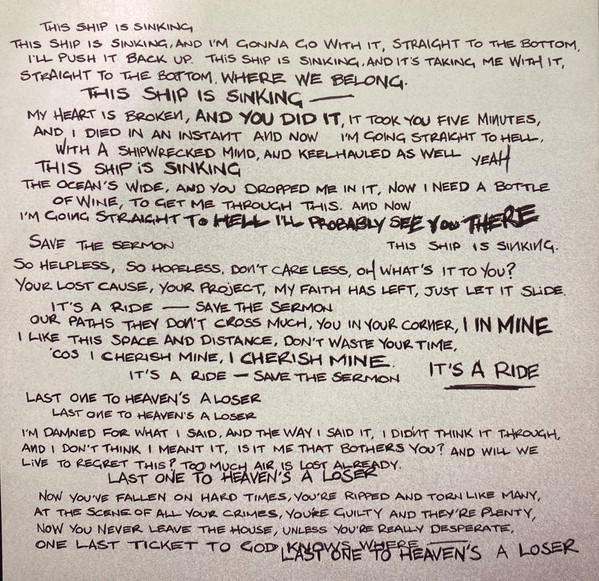 THIS SHIP IS SINKING
THIS SHIP IS SINKING, AND I'M GONNA GO WITH IT, STRAIGHT TO THE BOTTOM,
I'LL PUSH IT BACK UP. THIS SHIP IS SINKING, AND IT'S TAKING ME WITH IT,
STRAIGHT TO THE BOTTOM, WHERE WE BELONG.
THIS SHIP IS SINKING —
MY HEART IS BROKEN, AND YOU DID IT, IT TOOK YOU FIVE MINUTES,
AND I DIED IN AN INSTANT AND NOW I'M GOING STRAIGHT TO HELL,
WITH A SHIPWRECKED MIND, AND KEELHAULED AS WELL YEAH
THIS SHIP IS SINKING
THE OCEAN'S WIDE, AND YOU DROPPED ME IN IT, NOW I NEED A BOTTLE
OF WINE, TO GET ME THROUGH THIS. AND NOW
I'M GOING STRAIGHT TO HELL I'LL PROBABLY SEE YOU THERE
SAVE THE SERMON THIS SHIP IS SINKING.
SO HELPLESS, SO HOPELESS, DON'T CARE LESS, OH WHAT'S IT TO YOU?
YOUR LOST CAUSE, YOUR PROJECT, MY FAITH HAS LEFT, JUST LET IT SLIDE.
IT'S A RIDE — SAVE THE SERMON
OUR PATHS THEY DON'T CROSS MUCH, YOU IN YOUR CORNER, I IN MINE
I LIKE THIS SPACE AND DISTANCE, DON'T WASTE YOUR TIME,
'COS I CHERISH MINE, I CHERISH MINE.
IT'S A RIDE — SAVE THE SERMON IT'S A RIDE
LAST ONE TO HEAVEN'S A LOSER
LAST ONE TO HEAVEN'S A LOSER
I'M DAMNED FOR WHAT I SAID, AND THE WAY I SAID IT, I DIDN'T THINK IT THROUGH,
AND I DON'T THINK I MEANT IT, IS IT ME THAT BOTHERS YOU? AND WILL WE
LIVE TO REGRET THIS? TOO MUCH AIR IS LOST ALREADY.
LAST ONE TO HEAVEN'S A LOSER
NOW YOU'VE FALLEN ON HARD TIMES, YOU'RE RIPPED AND TORN LIKE MANY,
AT THE SCENE OF ALL YOUR CRIMES, YOU'RE GUILTY AND THEY'RE PLENTY,
NOW YOU NEVER LEAVE THE HOUSE, UNLESS YOU'RE REALLY DESPERATE,
ONE LAST TICKET TO GOD KNOWS WHERE —
LAST ONE TO HEAVEN'S A LOSER